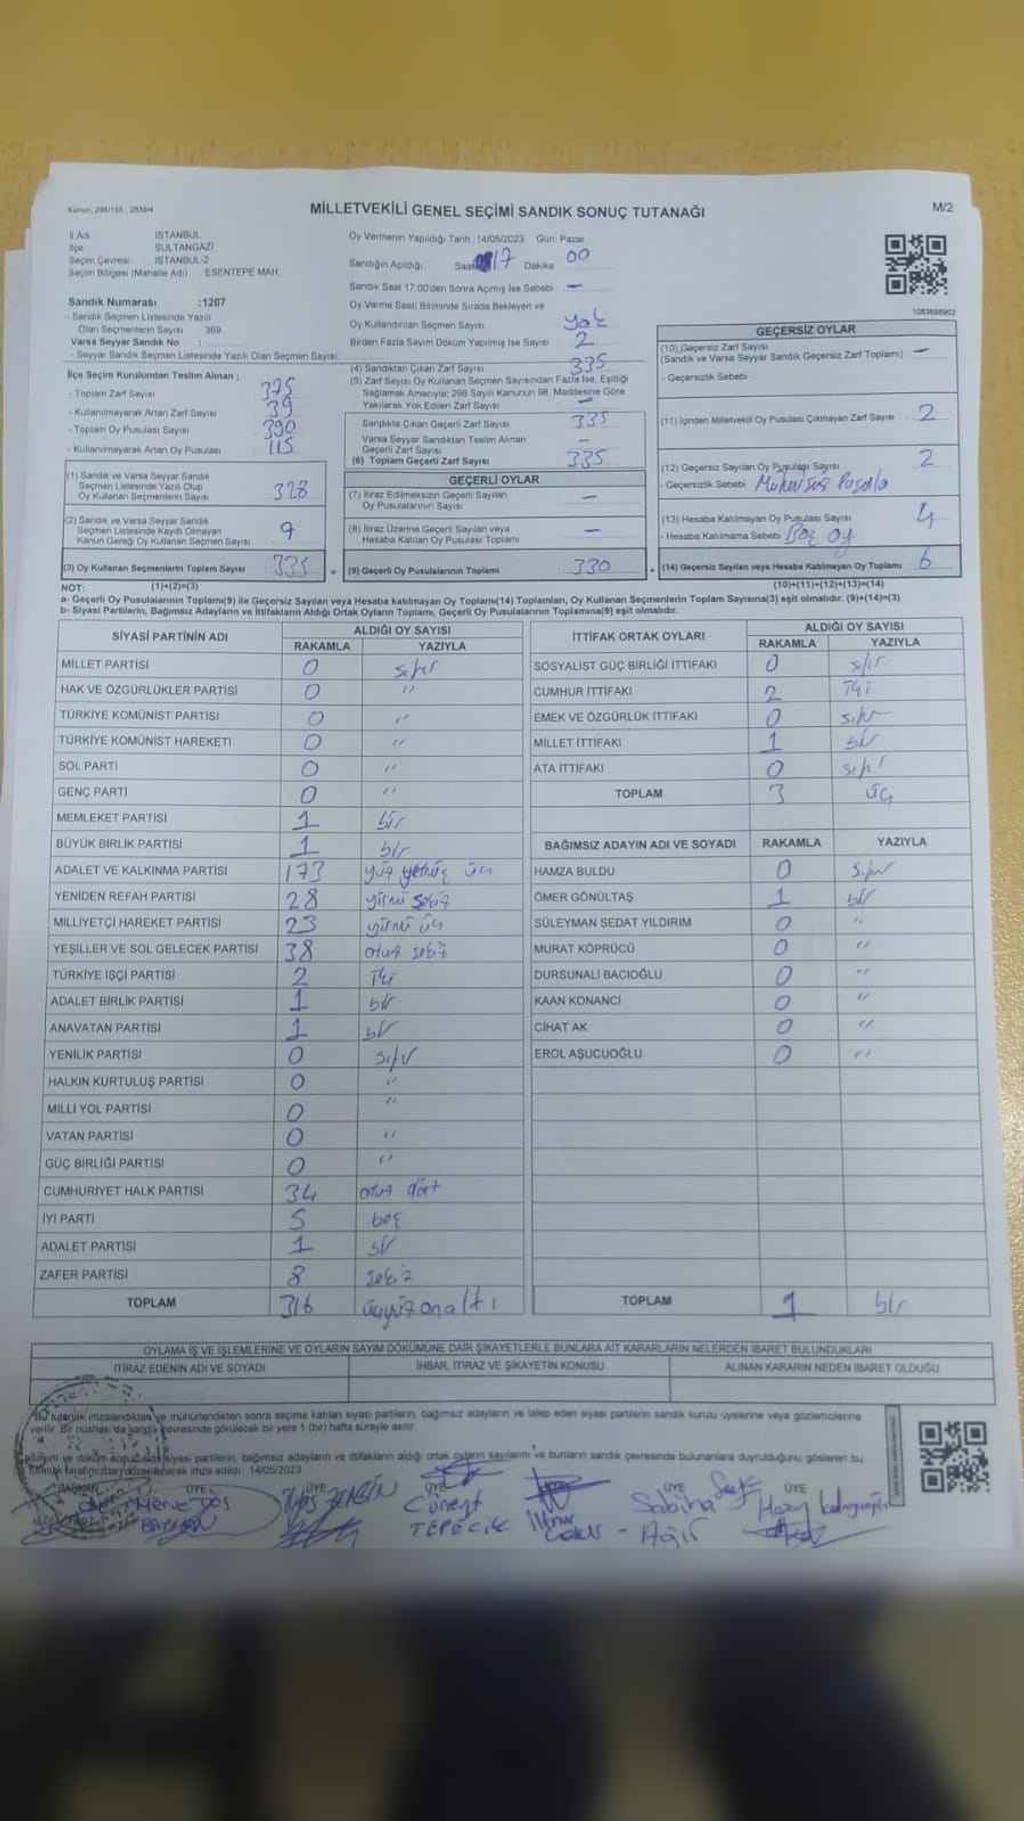 MİLLETVEKİLİ GENEL SEÇİMİ SANDIK SONUÇ TUTANAĞI
M/2
İl Adı İSTANBUL
İlçe SULTANGAZİ
Seçim Çevresi İSTANBUL-2
Seçim Bölgesi (Mahalle Adı) ESENTEPE MAH.
Sandık Numarası :1207
- Sandık Seçmen Listesinde Yazılı
Olan Seçmenlerin Sayısı 369
Varsa Seyyar Sandık No :
- Seyyar Sandık Seçmen Listesinde Yazılı Olan Seçmen Sayısı
İlçe Seçim Kurulundan Teslim Alınan ;
- Toplam Zarf Sayısı 375
- Kullanılmayarak Artan Zarf Sayısı 39
- Toplam Oy Pusulası Sayısı 390
- Kullanılmayarak Artan Oy Pusulası 115
(1) Sandık ve Varsa Seyyar Sandık
Seçmen Listesinde Yazılı Olup
Oy Kullanan Seçmenlerin Sayısı 328
(2) Sandık ve Varsa Seyyar Sandık
Seçmen Listesinde Kayıtlı Olmayan
Kanun Gereği Oy Kullanan Seçmen Sayısı 9
(3) Oy Kullanan Seçmenlerin Toplam Sayısı 335
Oy Vermenin Yapıldığı Tarih : 14/05/2023 Gün: Pazar
Sandığın Açıldığı Saat 17 Dakika 00
Sandık Saat 17:00'den Sonra Açılmış İse Sebebi —
Oy Verme Saati Bitiminde Sırada Bekleyen ve
Oy Kullandırılan Seçmen Sayısı yok
Birden Fazla Sayım Döküm Yapılmış İse Sayısı 2
(4) Sandıktan Çıkan Zarf Sayısı 335
(5) Zarf Sayısı Oy Kullanan Seçmen Sayısından Fazla İse, Eşitliği
Sağlamak Amacıyla; 298 Sayılı Kanunun 98. Maddesine Göre
Yakılarak Yok Edilen Zarf Sayısı —
Sandıkta Çıkan Geçerli Zarf Sayısı 335
Varsa Seyyar Sandıktan Teslim Alınan
Geçerli Zarf Sayısı —
(6) Toplam Geçerli Zarf Sayısı 335
GEÇERLİ OYLAR
(7) İtiraz Edilmeksizin Geçerli Sayılan
Oy Pusulalarının Sayısı —
(8) İtiraz Üzerine Geçerli Sayılan veya
Hesaba Katılan Oy Pusulası Toplamı —
(9) Geçerli Oy Pusulalarının Toplamı 330
1083698902
GEÇERSİZ OYLAR
(10) Geçersiz Zarf Sayısı
(Sandık ve Varsa Seyyar Sandık Geçersiz Zarf Toplamı) —
- Geçersizlik Sebebi
(11) İçinden Milletvekili Oy Pusulası Çıkmayan Zarf Sayısı 2
(12) Geçersiz Sayılan Oy Pusulası Sayısı 2
- Geçersizlik Sebebi Mühürsüz Pusula
(13) Hesaba Katılmayan Oy Pusulası Sayısı 4
- Hesaba Katılmama Sebebi Boş oy
(14) Geçersiz Sayılan veya Hesaba Katılmayan Oy Toplamı 6
NOT: (1)+(2)=(3) (10)+(11)+(12)+(13)=(14)
a- Geçerli Oy Pusulalarının Toplamı(9) ile Geçersiz Sayılan veya Hesaba katılmayan Oy Toplamı(14) Toplamları, Oy Kullanan Seçmenlerin Toplam Sayısına(3) eşit olmalıdır. (9)+(14)=(3)
b- Siyasi Partilerin, Bağımsız Adayların ve İttifakların Aldığı Ortak Oyların Toplamı, Geçerli Oy Pusulalarının Toplamına(9) eşit olmalıdır.
SİYASİ PARTİNİN ADI ALDIĞI OY SAYISI
RAKAMLA YAZIYLA
MİLLET PARTİSİ 0 sıfır
HAK VE ÖZGÜRLÜKLER PARTİSİ 0 "
TÜRKİYE KOMÜNİST PARTİSİ 0 "
TÜRKİYE KOMÜNİST HAREKETİ 0 "
SOL PARTİ 0 "
GENÇ PARTİ 0 "
MEMLEKET PARTİSİ 1 bir
BÜYÜK BİRLİK PARTİSİ 1 bir
ADALET VE KALKINMA PARTİSİ 173 yüz yetmiş üç
YENİDEN REFAH PARTİSİ 28 yirmi sekiz
MİLLİYETÇİ HAREKET PARTİSİ 23 yirmi üç
YEŞİLLER VE SOL GELECEK PARTİSİ 38 otuz sekiz
TÜRKİYE İŞÇİ PARTİSİ 2 iki
ADALET BİRLİK PARTİSİ 1 bir
ANAVATAN PARTİSİ 1 bir
YENİLİK PARTİSİ 0 sıfır
HALKIN KURTULUŞ PARTİSİ 0 "
MİLLİ YOL PARTİSİ 0 "
VATAN PARTİSİ 0 "
GÜÇ BİRLİĞİ PARTİSİ 0 "
CUMHURİYET HALK PARTİSİ 34 otuz dört
İYİ PARTİ 5 beş
ADALET PARTİSİ 1 bir
ZAFER PARTİSİ 8 sekiz
TOPLAM 316 üçyüzonaltı
İTTİFAK ORTAK OYLARI ALDIĞI OY SAYISI
RAKAMLA YAZIYLA
SOSYALİST GÜÇ BİRLİĞİ İTTİFAKI 0 sıfır
CUMHUR İTTİFAKI 2 iki
EMEK VE ÖZGÜRLÜK İTTİFAKI 0 sıfır
MİLLET İTTİFAKI 1 bir
ATA İTTİFAKI 0 sıfır
TOPLAM 3 üç
BAĞIMSIZ ADAYIN ADI VE SOYADI RAKAMLA YAZIYLA
HAMZA BULDU 0 sıfır
ÖMER GÖNÜLTAŞ 1 bir
SÜLEYMAN SEDAT YILDIRIM 0 "
MURAT KÖPRÜCÜ 0 "
DURSUNALİ BACIOĞLU 0 "
KAAN KONANCI 0 "
CİHAT AK 0 "
EROL AŞUCUOĞLU 0 "
TOPLAM 1 bir
OYLAMA İŞ VE İŞLEMLERİNE VE OYLARIN SAYIM DÖKÜMÜNE DAİR ŞİKAYETLERLE BUNLARA AİT KARARLARIN NELERDEN İBARET BULUNDUKLARI
İTİRAZ EDENİN ADI VE SOYADI İHBAR, İTİRAZ VE ŞİKAYETİN KONUSU ALINAN KARARIN NEDEN İBARET OLDUĞU
Bu tutanak imzalandıktan ve mühürlendikten sonra seçime katılan siyasi partilerin, bağımsız adayların ve talep eden siyasi partilerin sandık kurulu üyelerine veya gözlemcilerine
verilir. Bir nüshası da sandık çevresinde görülecek bir yere 1 (bir) hafta süreyle asılır.
siyasi partilerin, bağımsız adayların ve ittifakların aldığı ortak oyların sayılarını ve bunların sandık çevresinde bulunanlara duyurulduğunu gösteren bu
imza edildi. 14/05/2023
ÜYE ÜYE ÜYE ÜYE
Merve Cüneyt Sabiha
TEPECİK Ağır